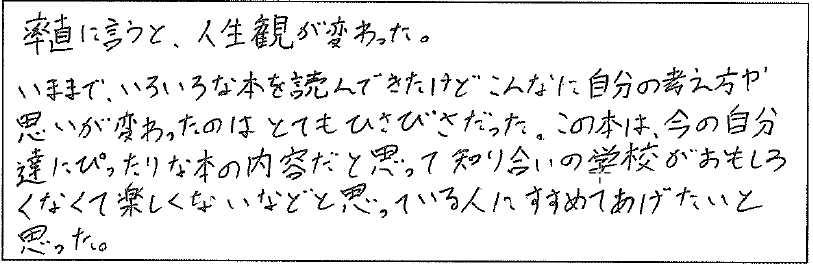 率直に言うと、人生観が変わった。
いままで、いろいろな本を読んできたけどこんなに自分の考え方や
思いが変わったのはとてもひさびさだった。この本は、今の自分
達にぴったりな本の内容だと思って知り合いの学校がおもしろ
くなくて楽しくないなどと思っている人にすすめてあげたいと
思った。